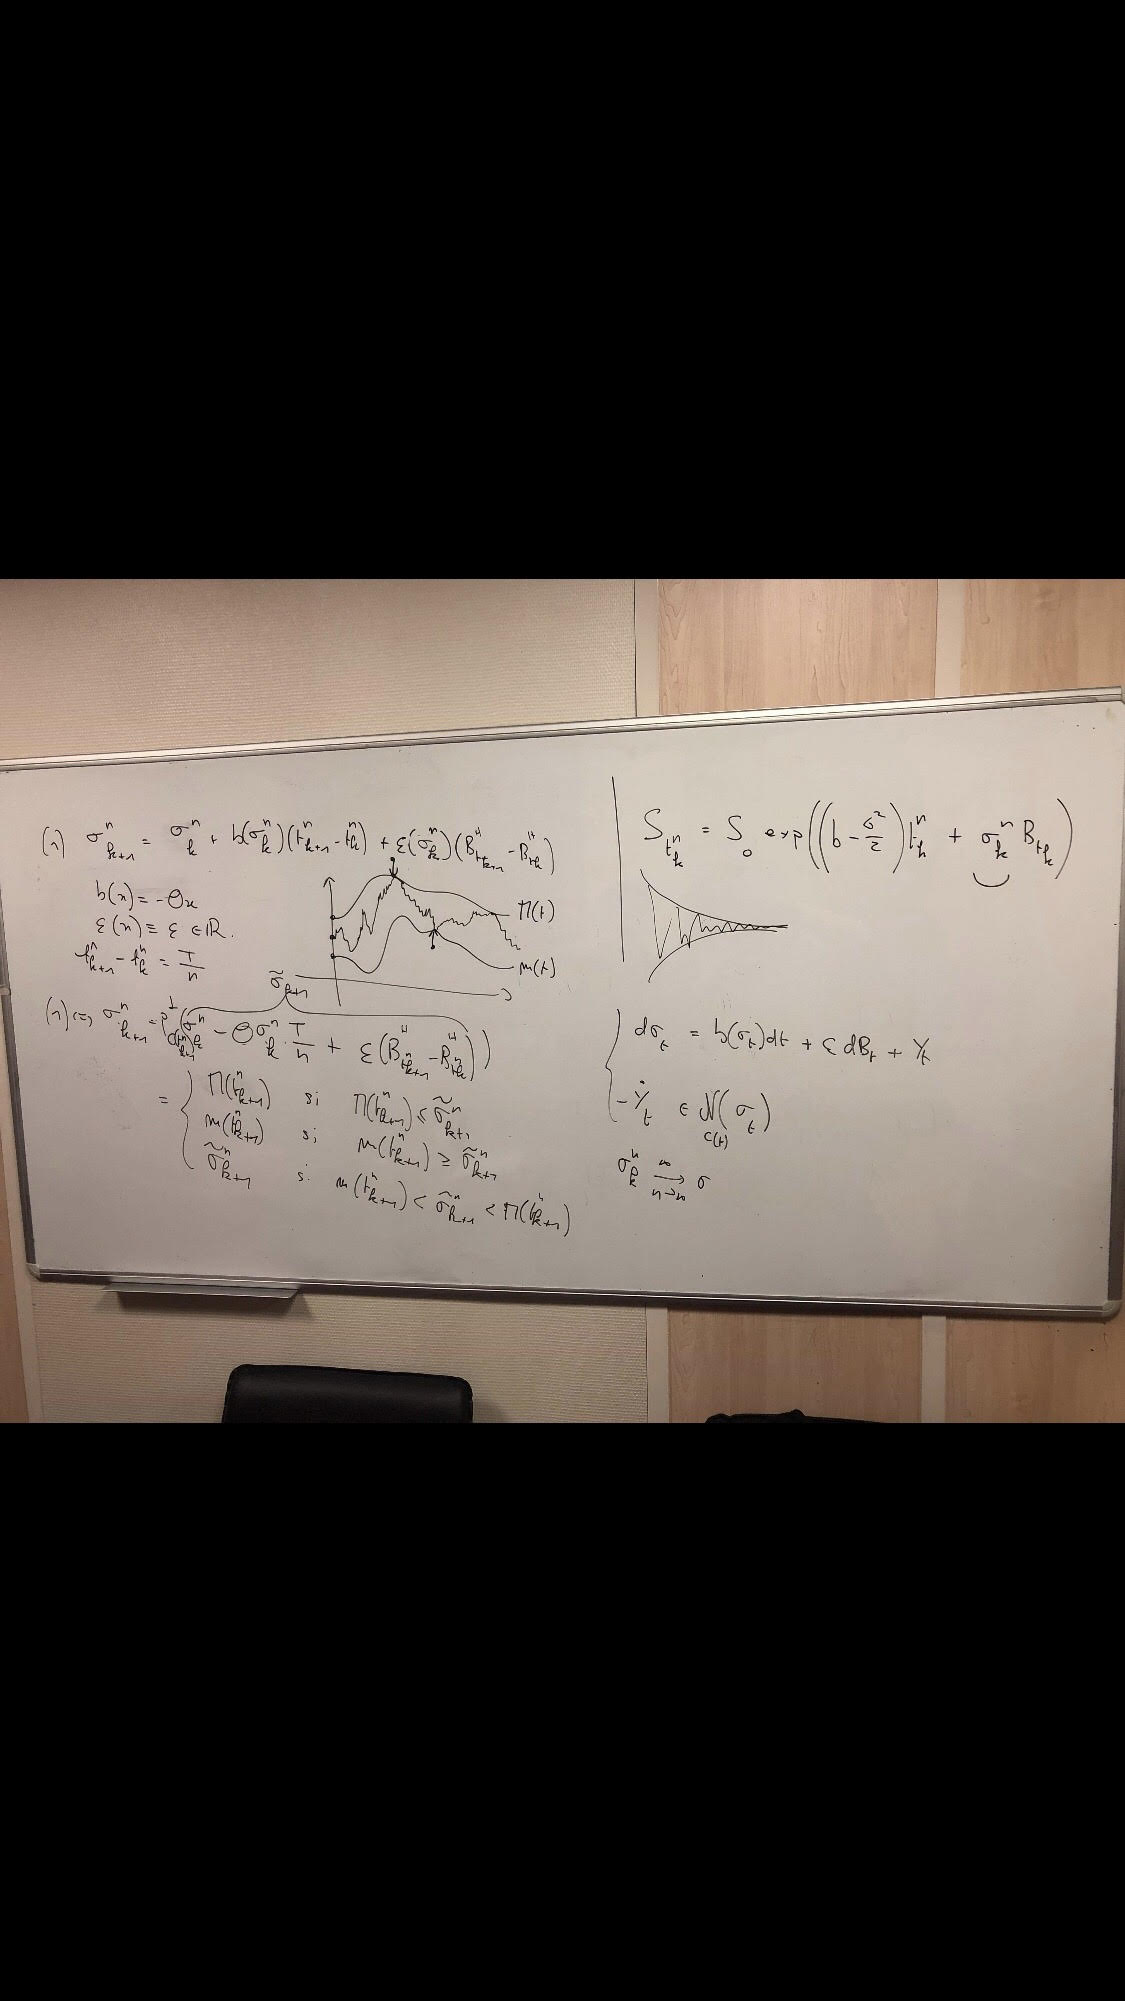 (1) σ^n_{k+1} = σ^n_k + b(σ^n_k)(t^n_{k+1} - t^n_k) + ε(σ^n_k)(B^H_{t_{k+1}} - B^H_{t_k})
b(x) = -θx
ε(x) ≡ ε ∈ ℝ.
t^n_{k+1} - t^n_k = T/n
M(t)
m(t)
σ̃_{k+1}
(1) ⇔ σ^n_{k+1} = P^⊥_{C(t^n_{k+1})}(σ^n_k - θσ^n_k · T/n + ε(B^H_{t^n_{k+1}} - B^H_{t^n_k}))
= { M(t^n_{k+1}) si M(t^n_{k+1}) ≤ σ̃^n_{k+1}
m(t^n_{k+1}) si m(t^n_{k+1}) ≥ σ̃^n_{k+1}
σ̃^n_{k+1} si m(t^n_{k+1}) < σ̃^n_{k+1} < M(t^n_{k+1})
S_{t^n_k} = S_0 exp((b - σ²/2)t^n_k + σ^n_k B_{t_k})
{ dσ_t = b(σ_t)dt + ε dB_t + Y_t
-Ẏ_t ∈ N_{C(t)}(σ_t)
σ^n_k →^∞_{n→∞} σ